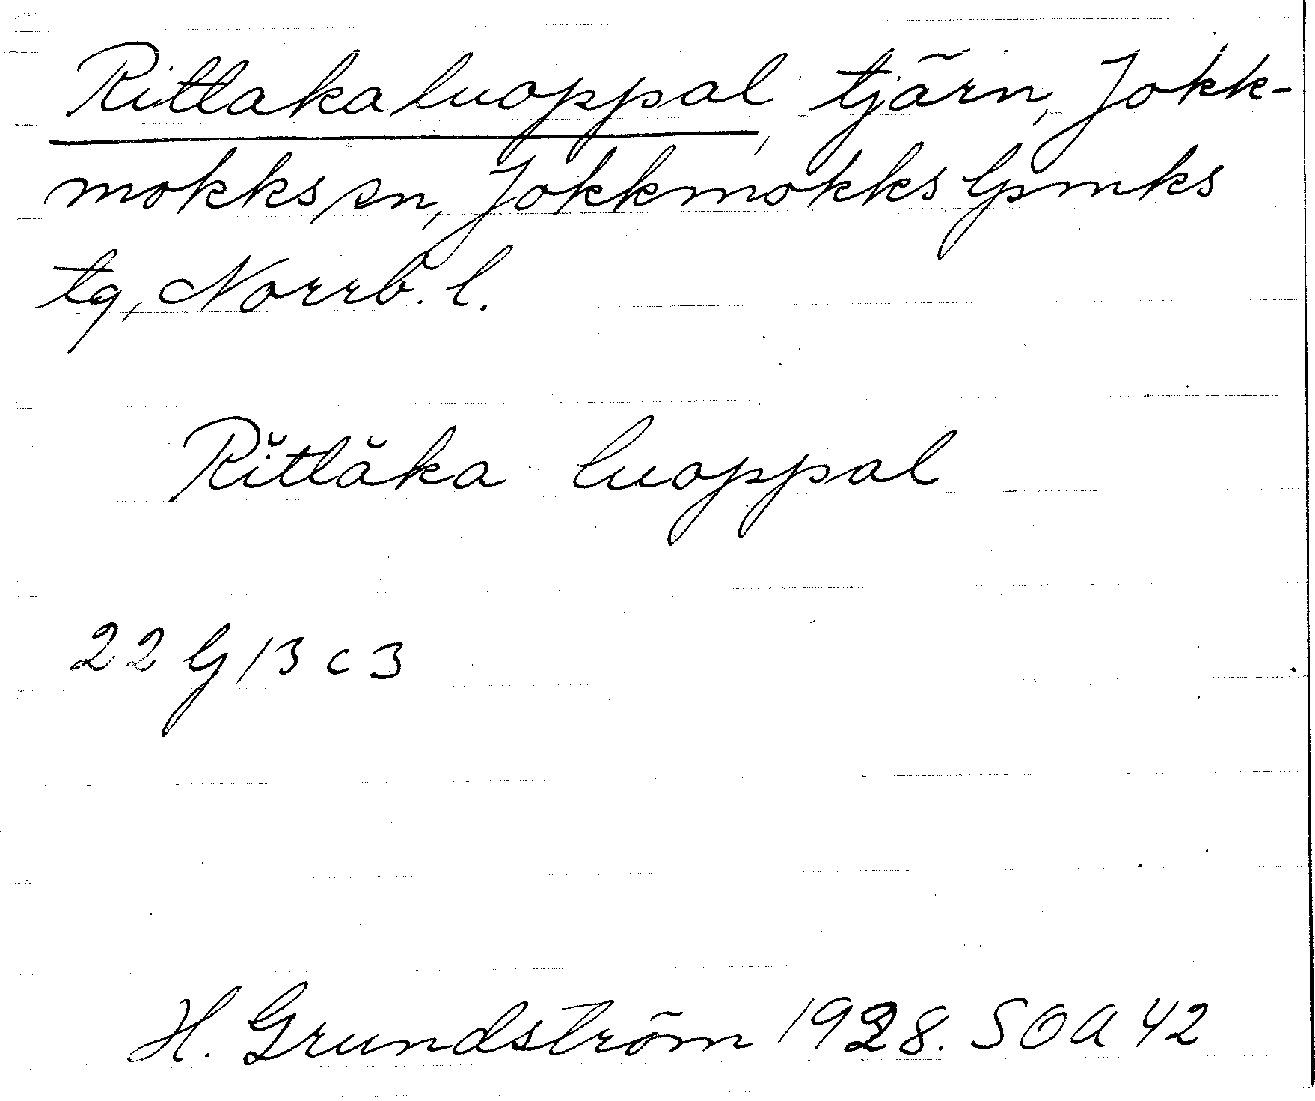 Ritlakaluoppal, tjärn, Jokk-
mokks sn, Jokkmokks lpmks
tg, Norrb. l.
Rĭtlăka luoppal
22 G 13 c 3
H. Grundström 1928. SOA 42